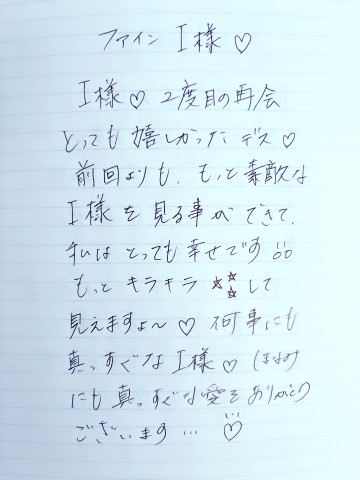 ファイン I様♡
I様♡ 2度目の再会
とっても嬉しかったデス♡
前回よりも、もっと素敵な
I様を見る事ができて、
私はとっても幸せです
もっとキラキラ☆☆☆して
見えますよ〜♡ 何事にも
真っすぐなI様♡ (まなみ
にも真っすぐな愛をありがとう
ございます…♡